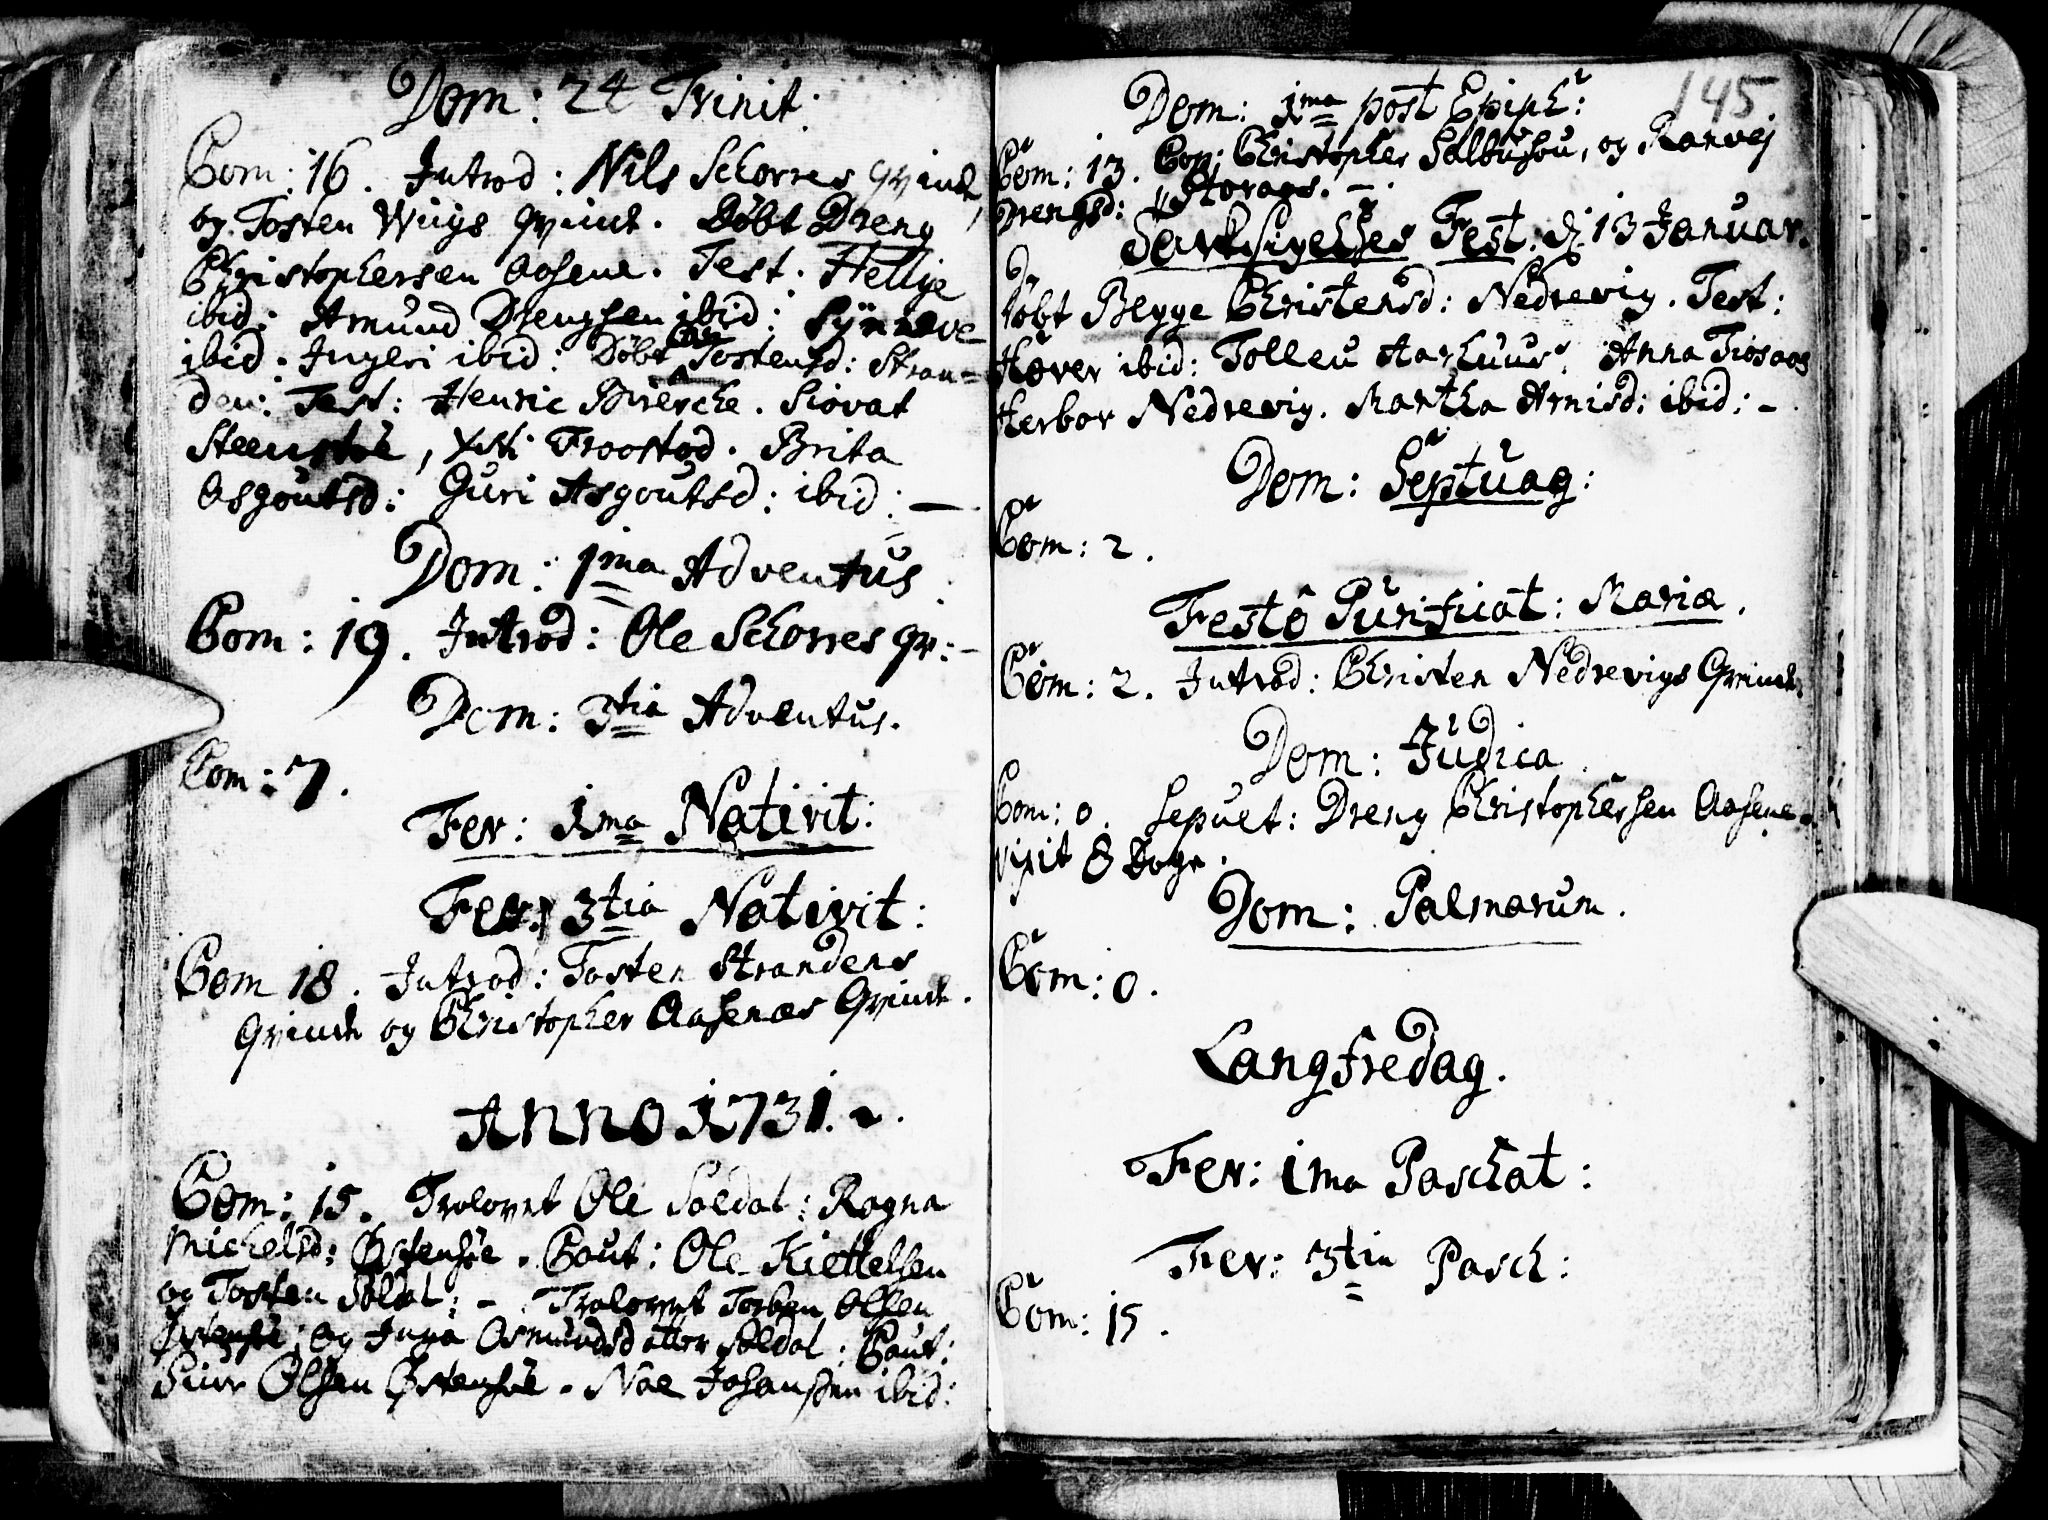 Dom: 24 Trinit:
Com: 16. Introd: Nils Schorres Qvinde,
og Tosten Wiigs Qvinde. Døbt Dreng
Christophersen Aasene. Test. Hellje
ibid: Amund Drengsen ibid: Synneve
ibid. Ingeri ibid: Døbt Tostensd: Stran=
den: Test: Henric Birche. Siovat
Steenstøe, Froestad. Brita
Asgoutsd: Guri Asgoutsd: ibid: —
Dom: 1ma Adventus
Com: 19. Introd: Ole Schorres qv: -
Dom: 3tia Adventus.
Com: 7.
Fer: 1ma Nativit:
Fer: 3tia Nativit:
Com 18. Introd: Tosten Strandens
Qvinde og Christopher Aasenæs Qvinde.
Anno 1731.
Com: 15. Trolovet Ole Soldal: Ragna
Michelsd: Østensøe. Caut: Ole Kiettelsen
og Tosten Soldal: - . Trolovet Torben Olsen
Østensøe; og Inga Osmundsd otter Soldal: Caut:
Siur Olsen Østensøe. Noe Johansen ibid:
145.
Dom: 1ma post Epiph:
Com: 13. Cop: Christopher Salbusou, og Ranvej
Drengsd: Storags. -.
Tacksigelses Fest. d. 13 Januar.
Døbt Bygge Christensd: Nedrevig. Test:
Haver ibid: Tolleu Aarhuus. Anna Tiosaas
Herbor Nedrevig. Martha Arnisd: ibid: - .
Dom: Septuag:
Com: 2.
Festo Purificat: Mariæ.
Com: 2. Introd: Christen Nedrevigs Qvinde.
Dom: Judica
Com: 0. Sepult: Dreng Christophersen Aasene.
vixit 8 Dage.
Dom: Palmarum.
Com: 0.
Langfredag.
Fer: 1ma Paschat:
Fer: 3tia Pasch:
Com: 15.